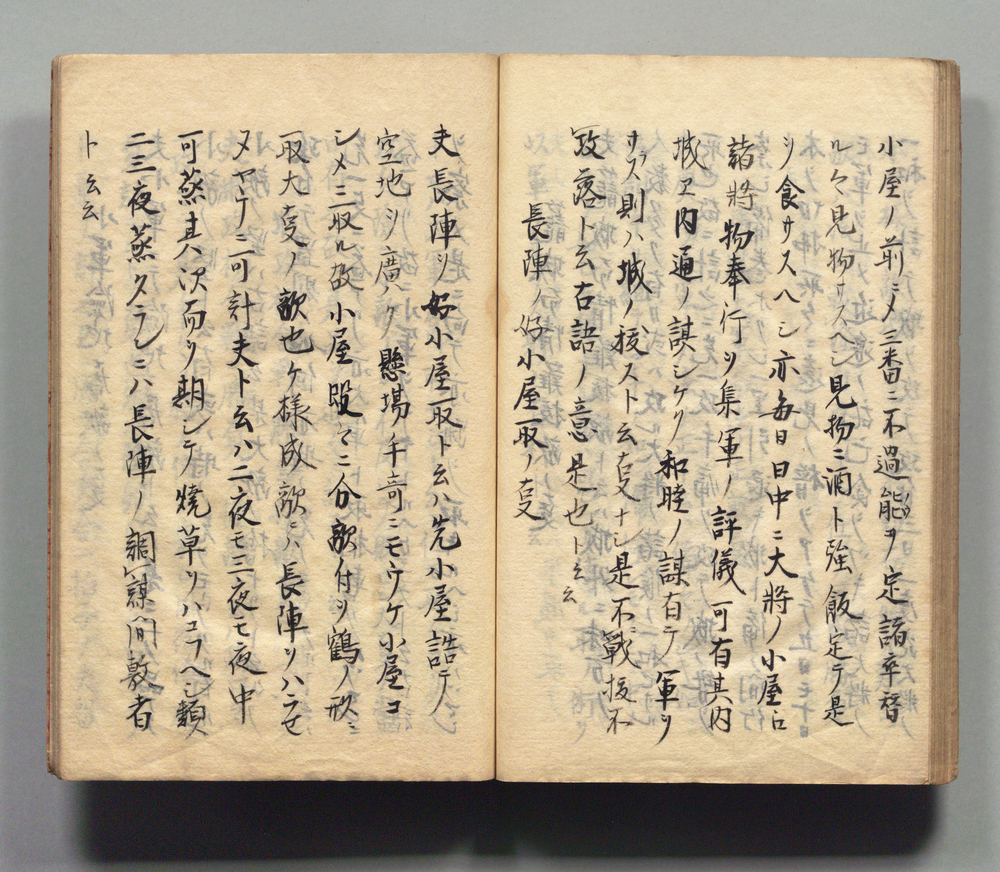 小屋ノ前ニメ三番ニ不過能ヲ定諸卒替
ル々見物サスヘシ見物ニ酒ト強飯定テ是
ヲ食サスヘシ亦毎日日中ニ大將ノ小屋ニ
諸將物奉行ヲ集軍ノ評儀可有其内
城ヱ内通ノ謀シケリ和睦ノ謀有テ軍ヲ
サス則ハ城ノ援スト云㕝ナシ是不戰援不
攻落ト云古語ノ意是也ト云云
長陣ノ好小屋取ノ㕝
夫長陣ヲ好小屋取ト云ハ先小屋詰テノ
空地ヲ廣ク懸場千竒ニモウケ小屋コ
シメニ取ル故小屋段々ニ分敵付ヲ鶴ノ形ニ
取大㕝ノ敵也ケ様成敵ニハ長陣ヲハラセ
ヌヤテニ可計夫ト云ハ二夜モ三夜モ夜中
可蒸其次而ヲ期シテ燒草ヲハコフヘシ類
二三夜蒸クラシニハ長陣ノ調謀間敷者
ト云云